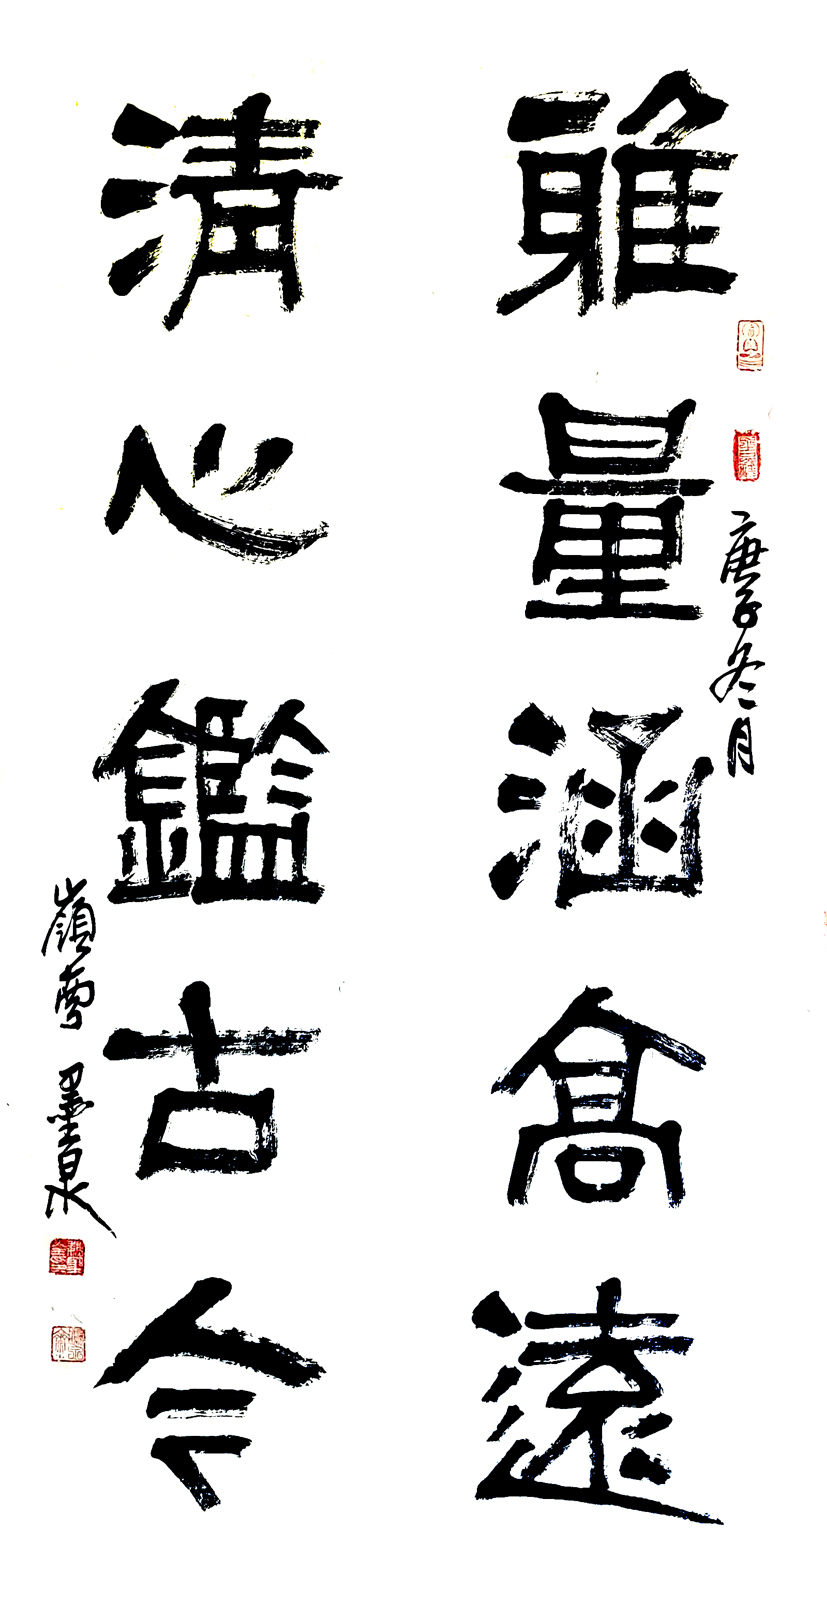 雅量涵高遠
清心鑑古今
庚子冬月
嶺雪 墨泉